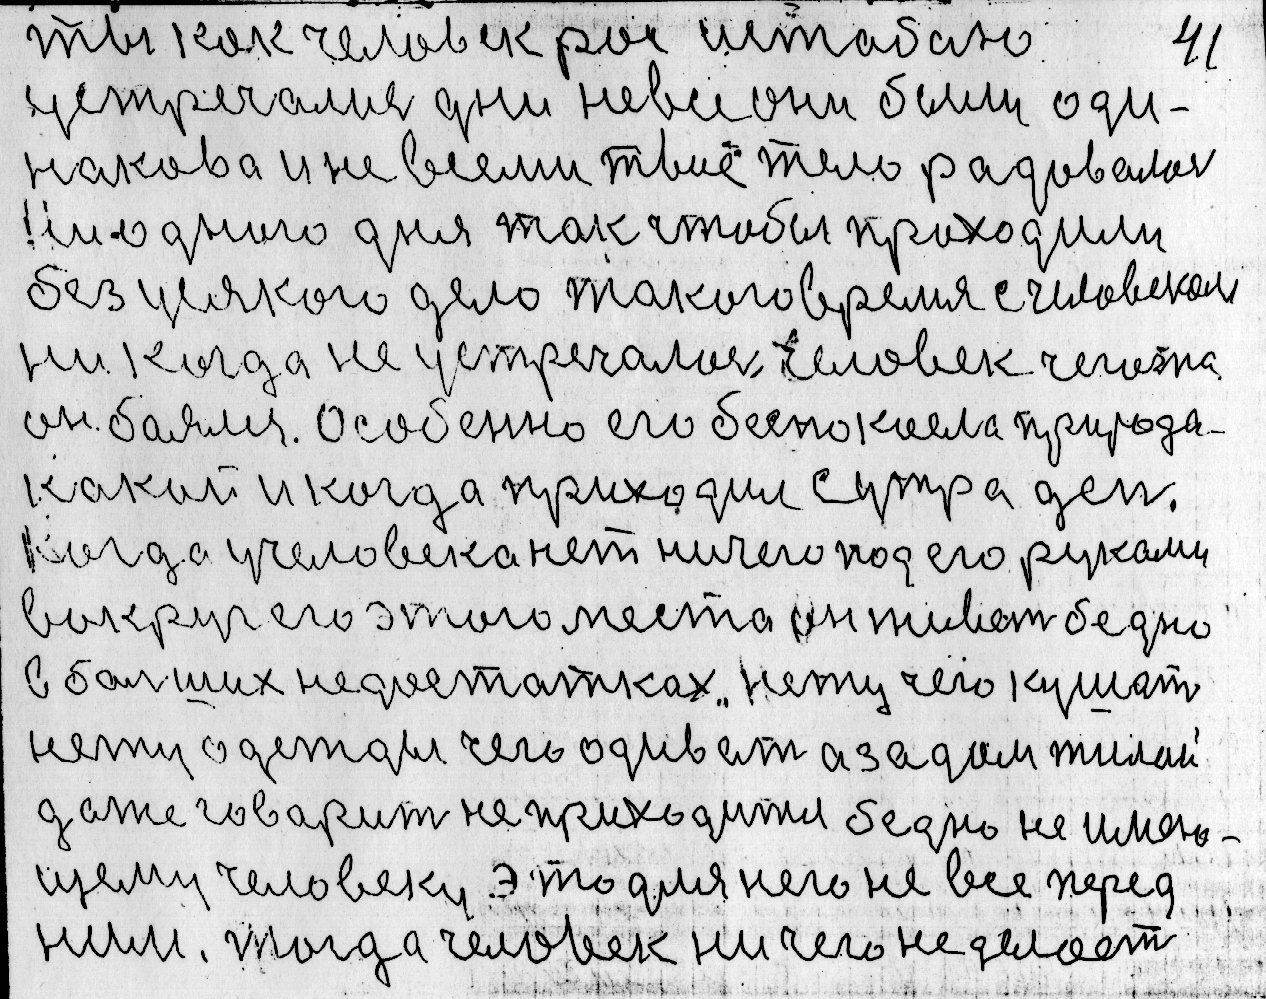 ты как человек рос и стобаю 41
устречался дни не все они были оди-
накова и не всеми твоё тело радовалося
Ни одного дня так чтобы проходили
без усякого дело такого время с человеком
ни когда не устречалося, человек чегота
он баялся. Особенно его беспокоела природа-
какой и когда приходил сутра ден.
Когда учеловека нет ничего под его руками
вокруг его этого места он живет бедно
в балших недостатках,, нету чего кушат
нету одежды чего одиват а за дом жилой
даже говарит не приходится бедно не имею-
щему человеку Это для него не все перед
ним. тогда человек ни чего не делает